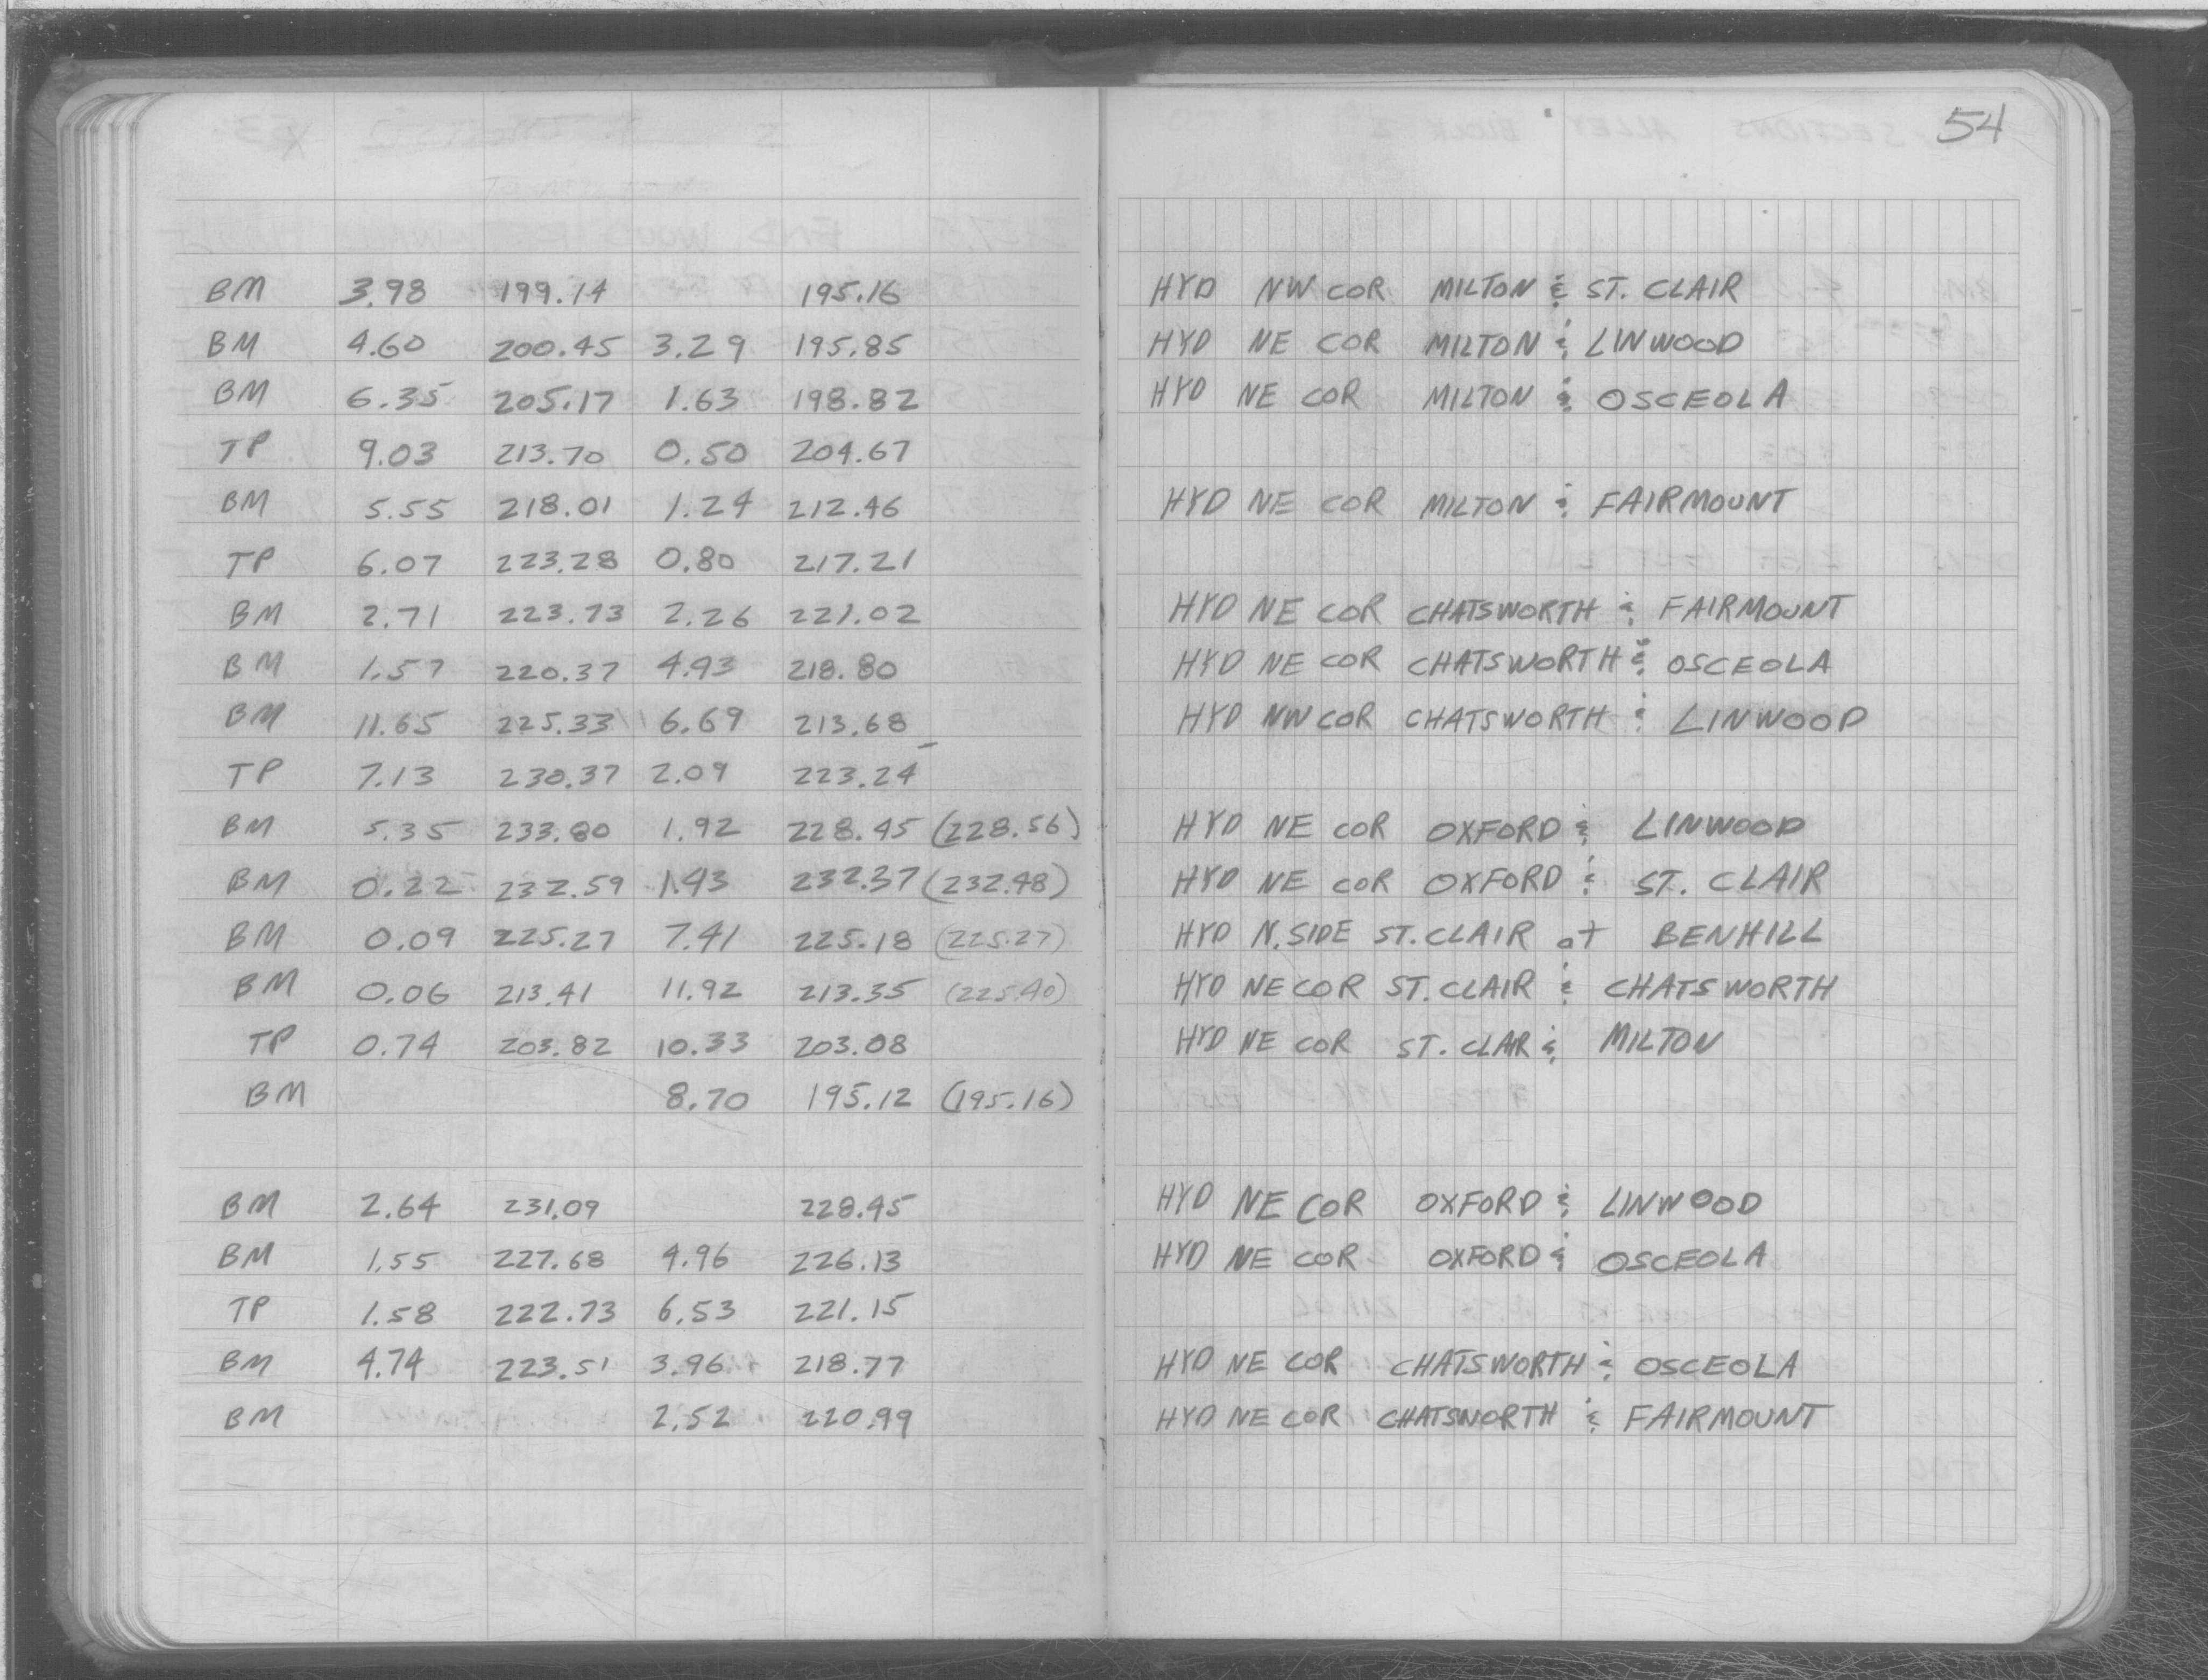 54
BM 3.98 199.14 195.16 HYD NW COR MILTON & ST. CLAIR
BM 4.60 200.45 3.29 195.85 HYD NE COR MILTON & LINWOOD
BM 6.35 205.17 1.63 198.82 HYD NE COR MILTON & OSCEOLA
TP 9.03 213.70 0.50 204.67
BM 5.55 218.01 1.24 212.46 HYD NE COR MILTON & FAIRMOUNT
TP 6.07 223.28 0.80 217.21
BM 2.71 223.73 2.26 221.02 HYD NE COR CHATSWORTH & FAIRMOUNT
BM 1.57 220.37 4.93 218.80 HYD NE COR CHATSWORTH & OSCEOLA
BM 11.65 225.33 6.69 213.68 HYD NW COR CHATSWORTH & LINWOOD
TP 7.13 230.37 2.09 223.24
BM 5.35 233.80 1.92 228.45 (228.56) HYD NE COR OXFORD & LINWOOD
BM 0.22 232.59 1.43 232.37 (232.48) HYD NE COR OXFORD & ST. CLAIR
BM 0.09 225.27 7.41 225.18 (225.27) HYD N. SIDE ST. CLAIR at BENHILL
BM 0.06 213.41 11.92 213.35 (225.40) HYD NE COR ST. CLAIR & CHATSWORTH
TP 0.74 203.82 10.33 203.08 HYD NE COR ST. CLAR & MILTON
BM 8.70 195.12 (195.16)
BM 2.64 231.09 228.45 HYD NE COR OXFORD & LINWOOD
BM 1.55 227.68 4.96 226.13 HYD NE COR OXFORD & OSCEOLA
TP 1.58 222.73 6.53 221.15
BM 4.74 223.51 3.96 218.77 HYD NE COR CHATSWORTH & OSCEOLA
BM 2.52 220.99 HYD NE COR CHATSWORTH & FAIRMOUNT